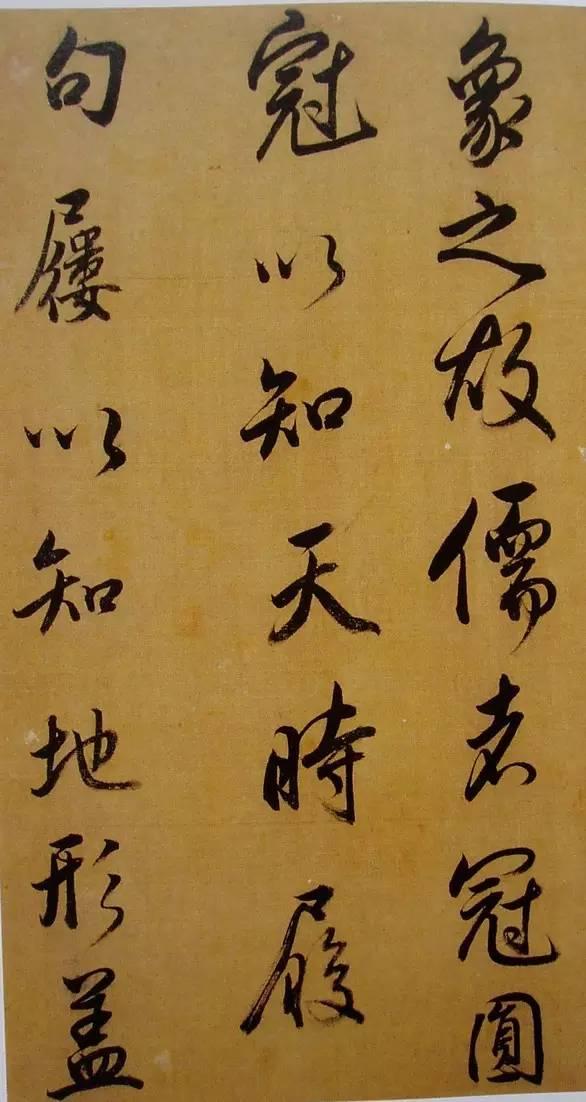 象之故儒者冠圓
冠以知天時履
句屨以知地形蓋